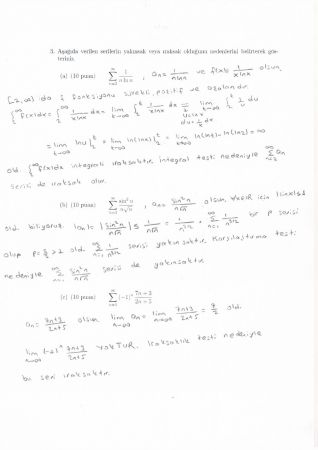 3. Aşağıda verilen serilerin yakınsak veya ıraksak olduğunu nedenlerini belirterek gös-
teriniz.
(a) (10 puan) ∑_{n=2}^{∞} 1/(n ln n) , a_n = 1/(n ln n) ve f(x) = 1/(x ln x) olsun.
[2,∞) da f fonksiyonu sürekli, pozitif ve azalandır.
∫_2^∞ f(x)dx = ∫_2^∞ 1/(x ln x) dx = lim_{t→∞} ∫_2^t 1/(x ln x) dx = lim_{t→∞} ∫_2^t 1/u du
u = ln x
du = 1/x dx
= lim_{t→∞} ln u |_2^t = lim_{t→∞} ln(ln x) |_2^t = lim_{t→∞} ln(ln t) - ln(ln 2) = ∞
old. ∫_2^∞ f(x)dx integrali ıraksaktır, integral testi nedeniyle ∑_{n=2}^{∞} a_n
serisi de ıraksak olur.
(b) (10 puan) ∑_{n=1}^{∞} sin²n/(n√n) , a_n = sin²n/(n√n) olsun, ∀x∈ℝ için |sin x| ≤ 1
old. biliyoruz. |a_n| = |sin²n/(n√n)| ≤ 1/(n√n) = 1/n^{3/2} , ∑_{n=1}^{∞} 1/n^{3/2} bir p serisi
olup p = 3/2 > 1 old. ∑_{n=1}^{∞} 1/n^{3/2} serisi yakınsaktır. Karşılaştırma testi
nedeniyle ∑_{n=1}^{∞} sin²n/(n√n) serisi de yakınsaktır.
(c) (10 puan) ∑_{n=1}^{∞} (-1)^n (7n+3)/(2n+5)
a_n = (7n+3)/(2n+5) olsun. lim_{n→∞} a_n = lim_{n→∞} (7n+3)/(2n+5) = 7/2 old.
lim_{n→∞} (-1)^n (7n+3)/(2n+5) YOKTUR. Iraksaklık testi nedeniyle
bu seri ıraksaktır.